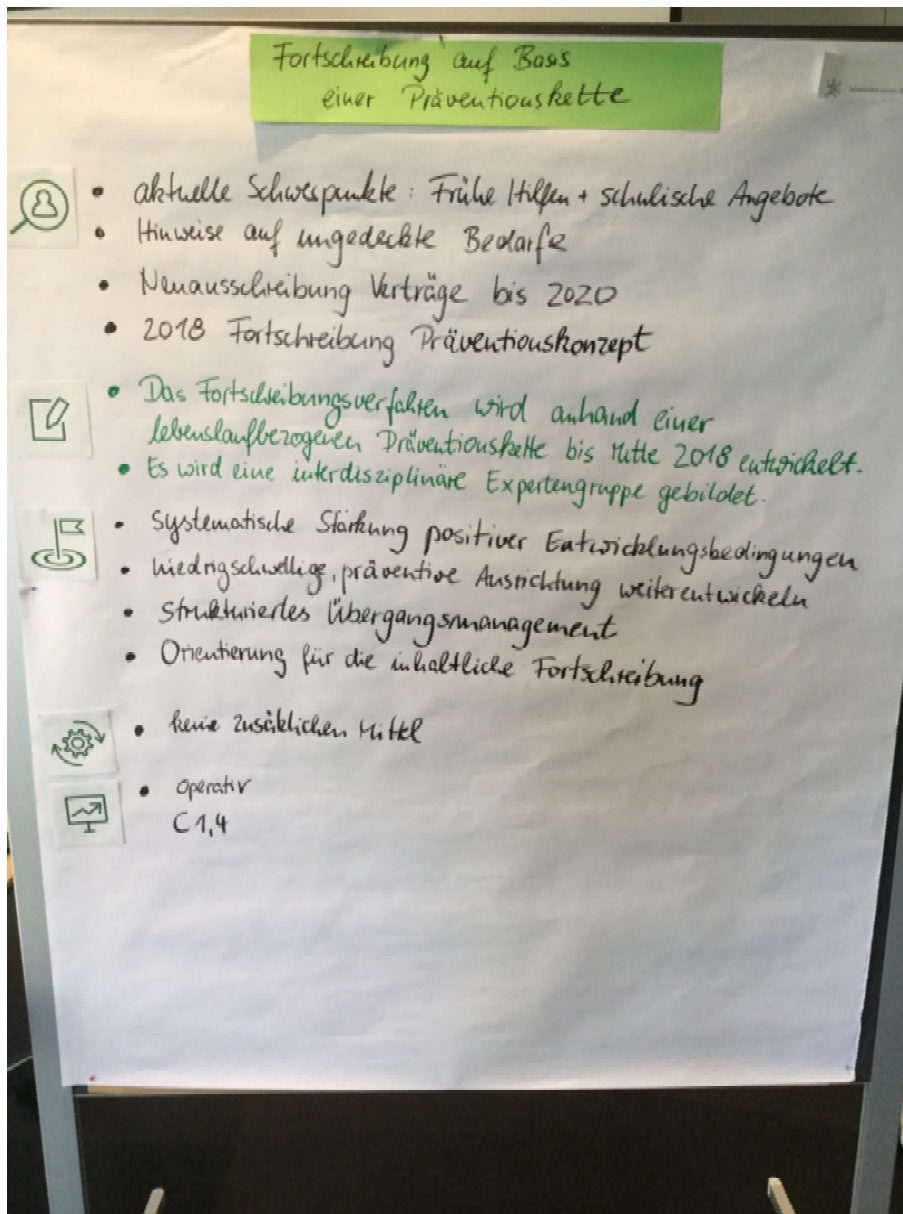 Fortschreibung auf Basis
einer Präventionskette
• aktuelle Schwerpunkte: Frühe Hilfen + schulische Angebote
• Hinweise auf ungedeckte Bedarfe
• Neuausschreibung Verträge bis 2020
• 2018 Fortschreibung Präventionskonzept
• Das Fortschreibungsverfahren wird anhand einer
lebenslaufbezogenen Präventionskette bis Mitte 2018 entwickelt.
• Es wird eine interdisziplinäre Expertengruppe gebildet.
• Systematische Stärkung positiver Entwicklungsbedingungen
• niedrigschwellige, präventive Ausrichtung weiterentwickeln
• Strukturiertes Übergangsmanagement
• Orientierung für die inhaltliche Fortschreibung
• keine zusätzlichen Mittel
• operativ
C 1,4